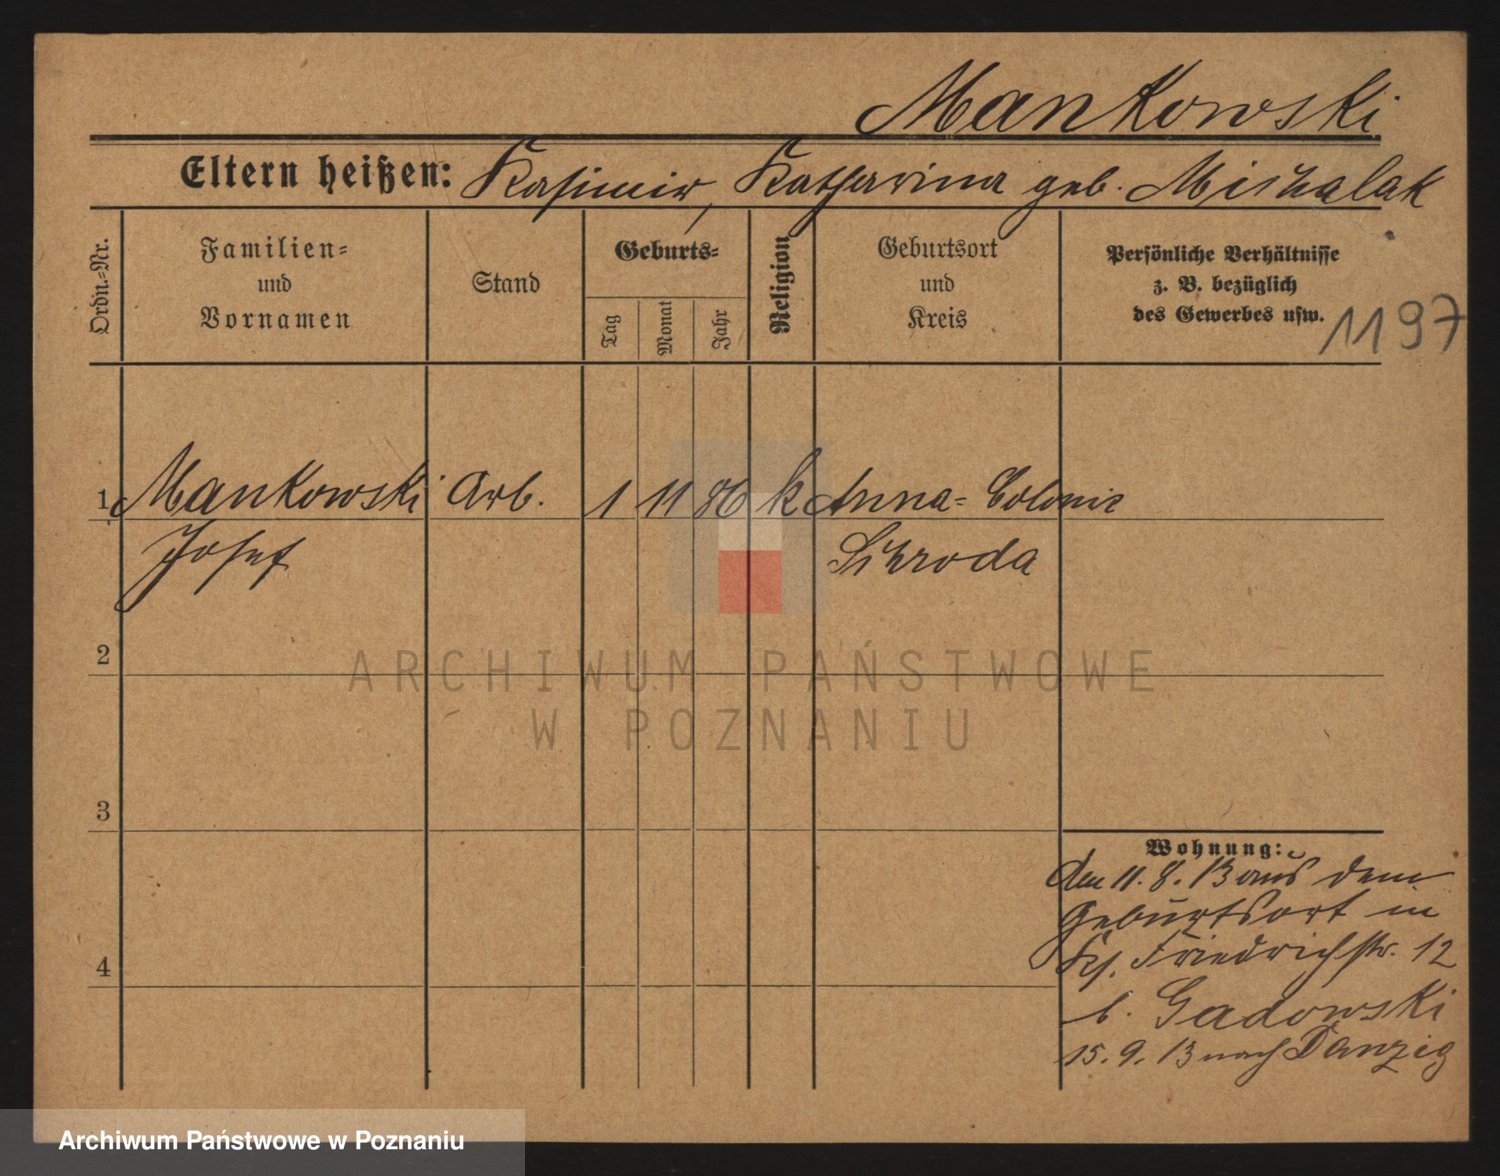 Mankowski
Eltern heißen: Kasimir, Katharina geb. Michalak
Ordn.-Nr.
Familien-
und
Vornamen
Stand
Geburts-
Tag
Monat
Jahr
Religion
Geburtsort
und
Kreis
Persönliche Verhältnisse
z. B. bezüglich
des Gewerbes usw.
1197
1 Mankowski Arb. 1 11 86 k Anna-Colonie
Josef Schroda
2
3
4
Wohnung:
den 11.8.13 aus dem
Geburtsort in
Friedrichstr. 12
b. Gadowski
15.9.13 nach Danzig
ARCHIWUM PAŃSTWOWE
W POZNANIU
Archiwum Państwowe w Poznaniu